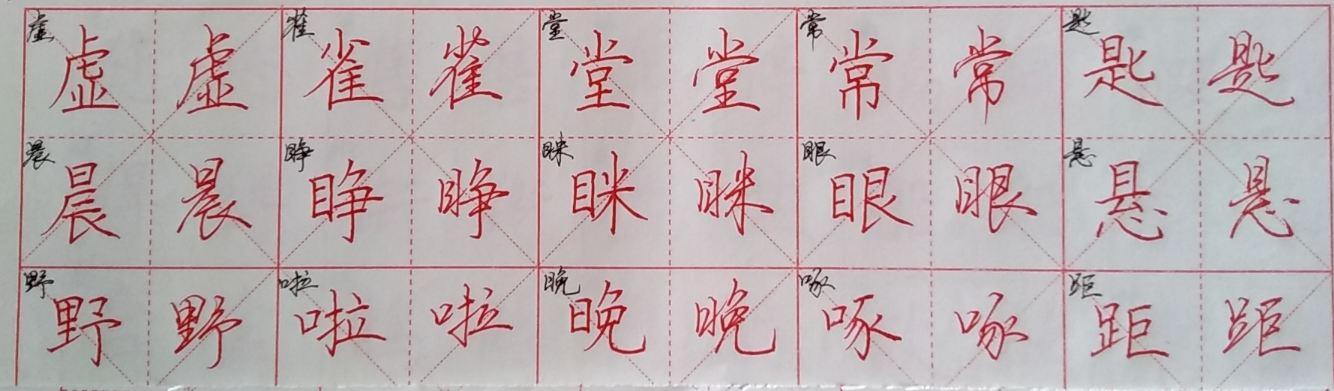 虚 虚 虚 雀 雀 雀 堂 堂 堂 常 常 常 匙 匙 匙
晨 晨 晨 睁 睁 睁 眯 眯 眯 眼 眼 眼 悬 悬 悬
野 野 野 啦 啦 啦 晚 晚 晚 啄 啄 啄 距 距 距